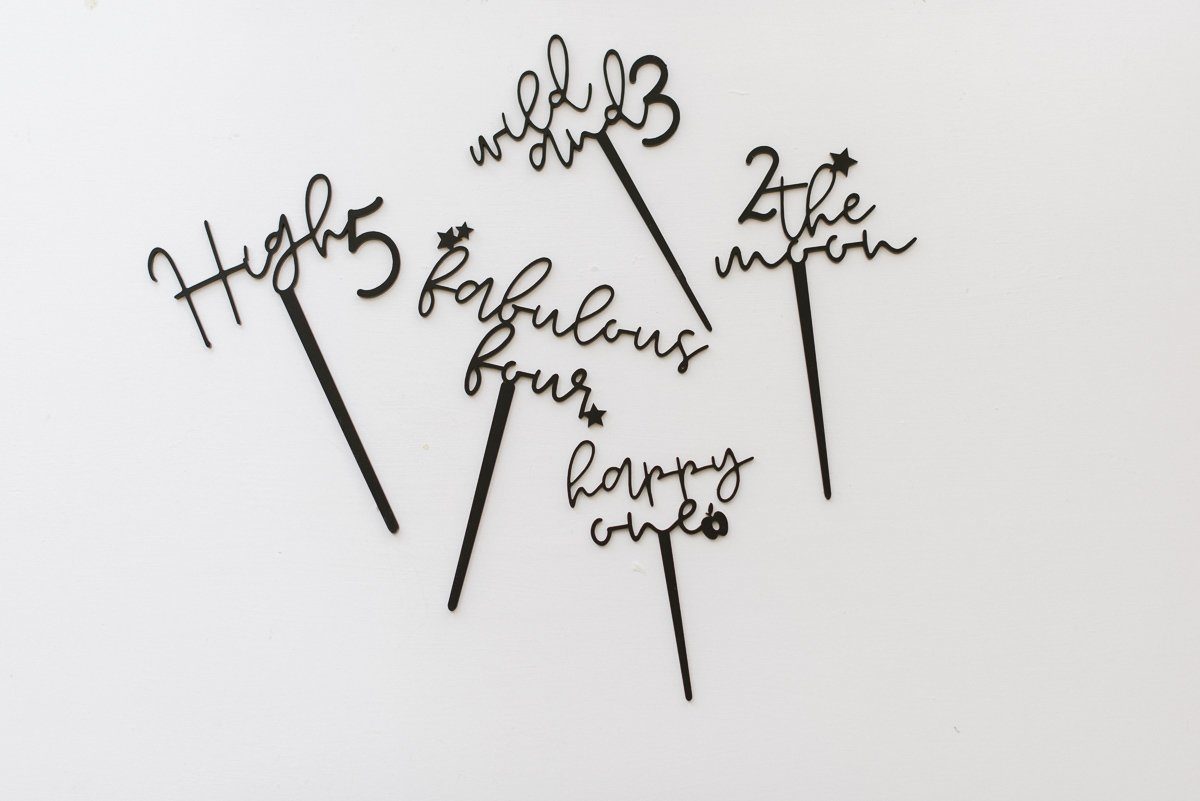 wild
and 3
2 the
moon
High 5
fabulous
four
happy
one